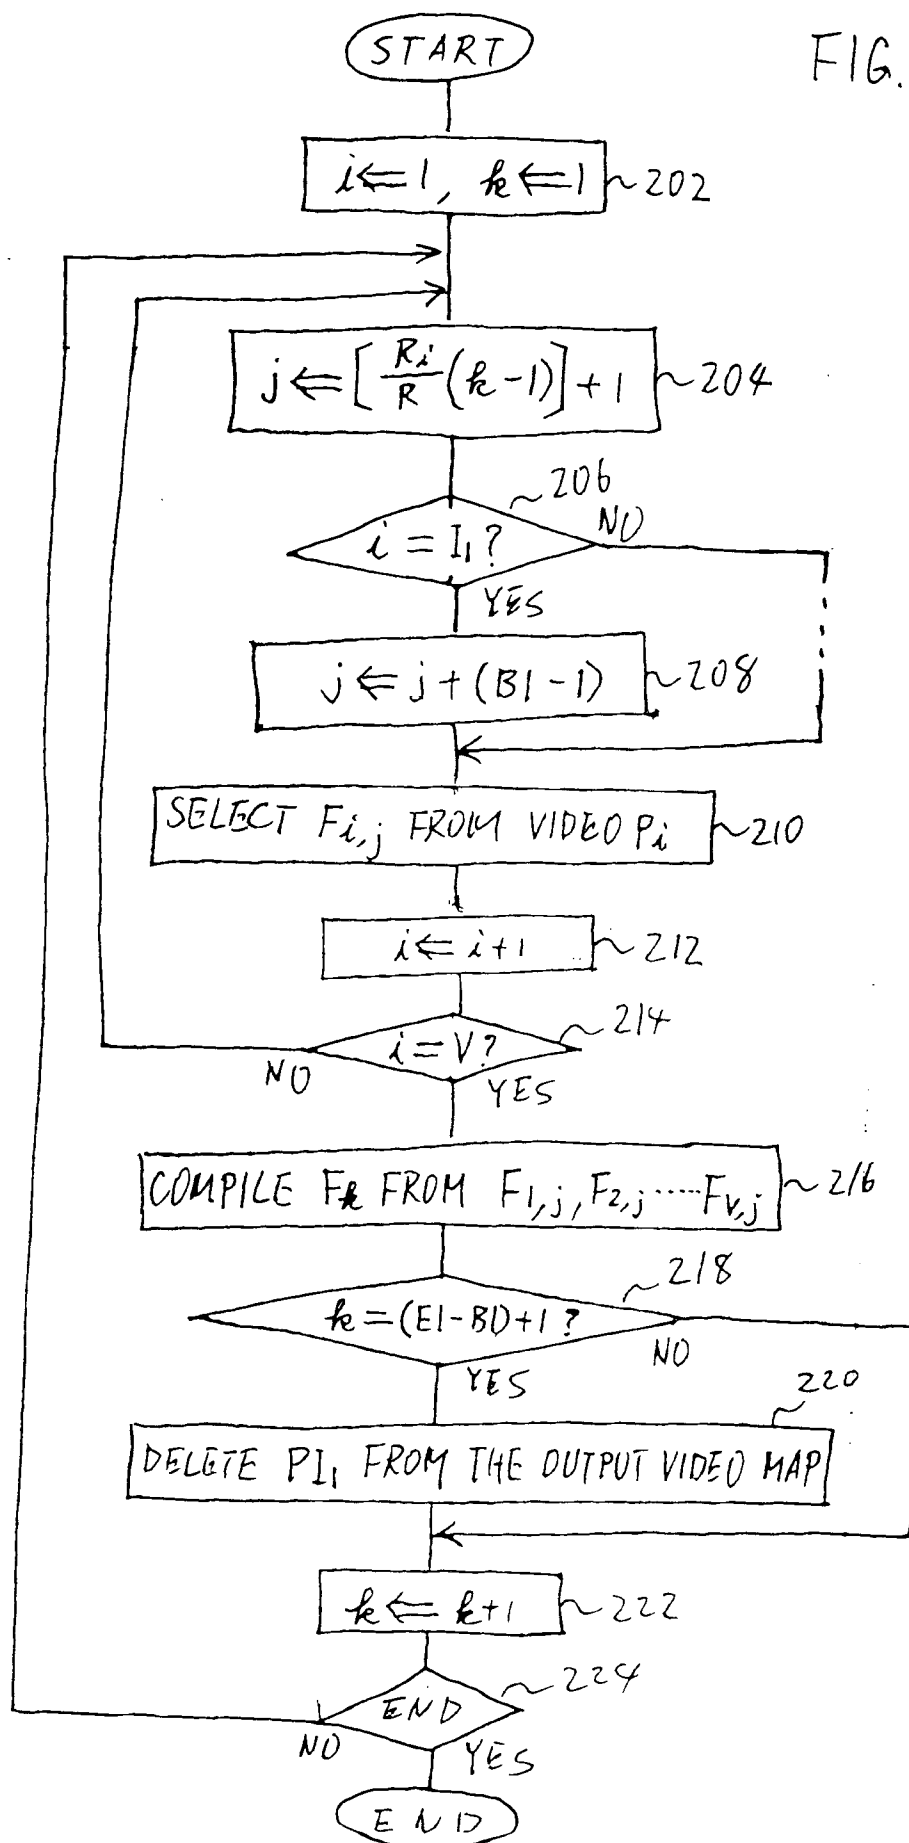 START
FIG.
i⇐1, k⇐1
202
j⇐[Ri/R(k-1)]+1
204
206
i=I₁?
NO
YES
j⇐j+(B1-1)
208
SELECT Fi,j FROM VIDEO Pi
210
i⇐i+1
212
214
i=V?
NO
YES
COMPILE Fk FROM F1,j, F2,j ..... Fv,j
216
218
k=(E1-B1)+1?
NO
YES
220
DELETE PI₁ FROM THE OUTPUT VIDEO MAP
k⇐k+1
222
224
END
NO
YES
END